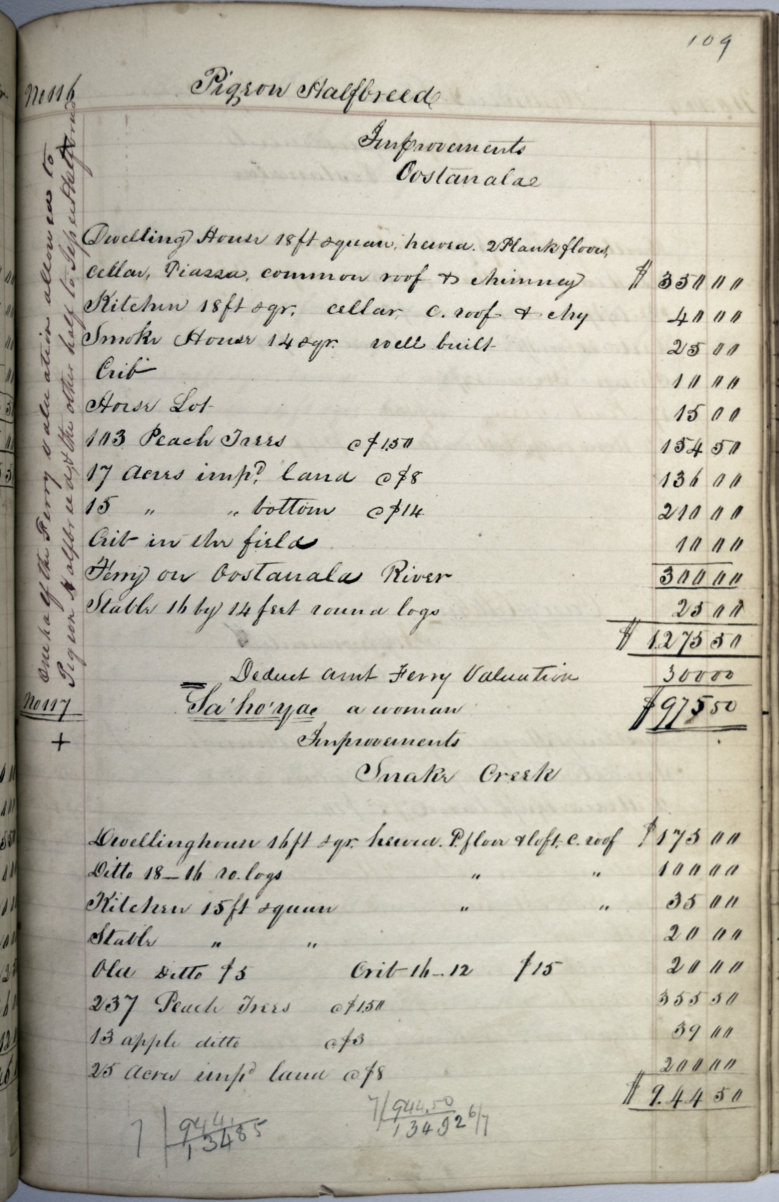 109
No 116 Pigeon Halfbreed
Improvements
Oostanalae
One half the Ferry valuation allowed to
Pigeon Halfbreed & the other half to
Dwelling House 18ft square, hewed. 2 Plank floors,
cellar, Piazza, common roof & chimney $ 350 00
Kitchen 18ft sqr. cellar. c. roof & chy 40 00
Smoke House 14 sqr. well built 25 00
Crib 10 00
Horse Lot 15 00
103 Peach Trees @ $1.50 154 50
17 Acres imp.d land @ $8 136 00
15 " " bottom @ $14 210 00
Crib in the field 10 00
Ferry on Oostanala River 300 00
Stable 16 by 14 feet round logs 25 00
$ 1275 50
Deduct amt Ferry Valuation 300 00
No 117 Sa'ho'yae a woman $ 975 50
+ Improvements
Snake Creek
Dwellinghouse 16ft sqr. hewed. P. floor & loft. c. roof $ 175 00
Ditto 18–16 ro. logs " " 100 00
Kitchen 15ft square " " 35 00
Stable " " 20 00
Old Ditto $5 Crib 16–12 $15 20 00
237 Peach Trees @ $1.50 355 50
13 apple ditto @ $3 39 00
25 Acres imp.d land @ $8 200 00
$ 944 50
7 | 944 7 | 944.50
13485 134 92 6/7